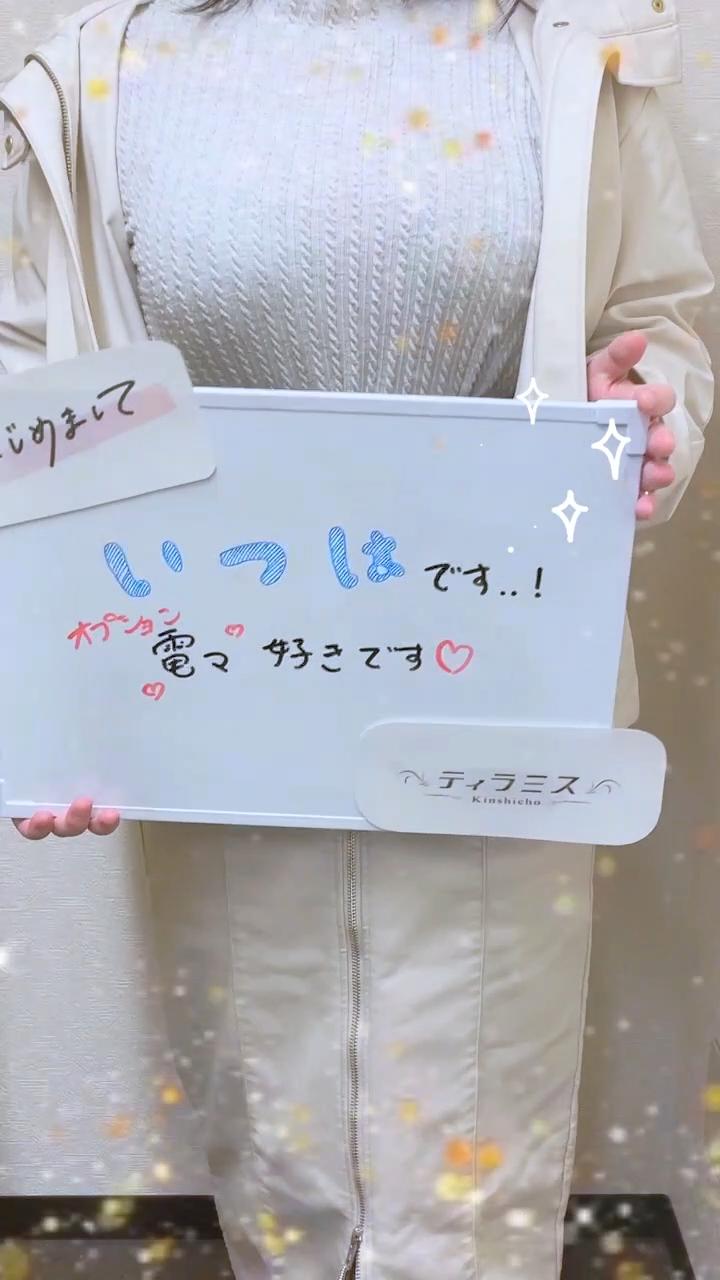 じめまして
いつはです..!
オプション
電マ 好きです♡
ティラミス
Kinshicho